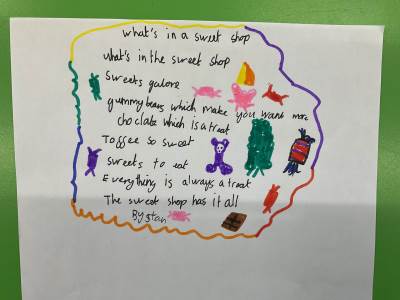 what's in a sweet shop
what's in the sweet shop
Sweets galore
gummybears which make you want more
choclate which is a treat
Toffee so sweet
sweets to eat
Everything is always a treat
The sweet shop has it all
By Stan